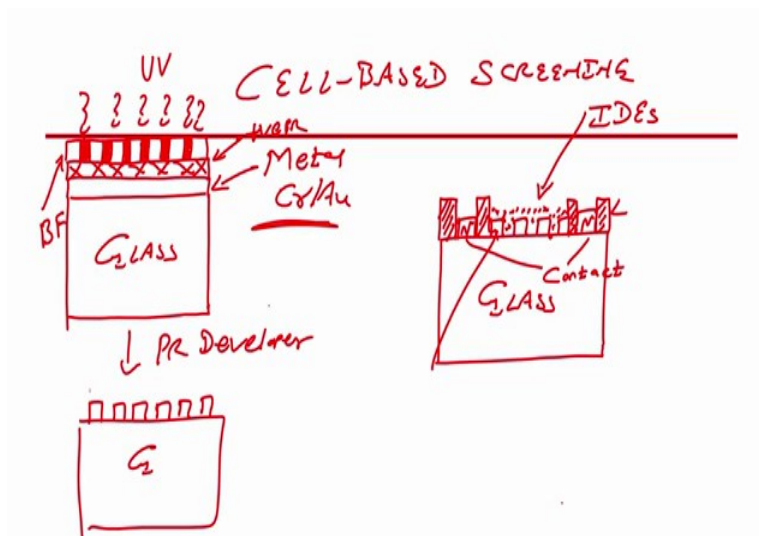 UV
CELL-BASED SCREENING
IDEs
Metal
Cr/Au
BF
GLASS
Contact
GLASS
PR Developer
G